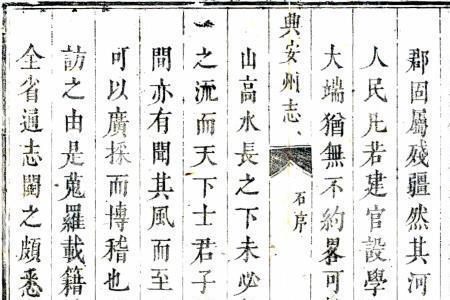 郡固屬殘疆然其河
人民凡若建官設學
大端猶無不約畧可
興安州志
石序
山高水長之下未必
之流而天下士君子
間亦有聞其風而至
可以廣採而博稽也
訪之由是蒐羅載籍
全省通志閱之頗悉